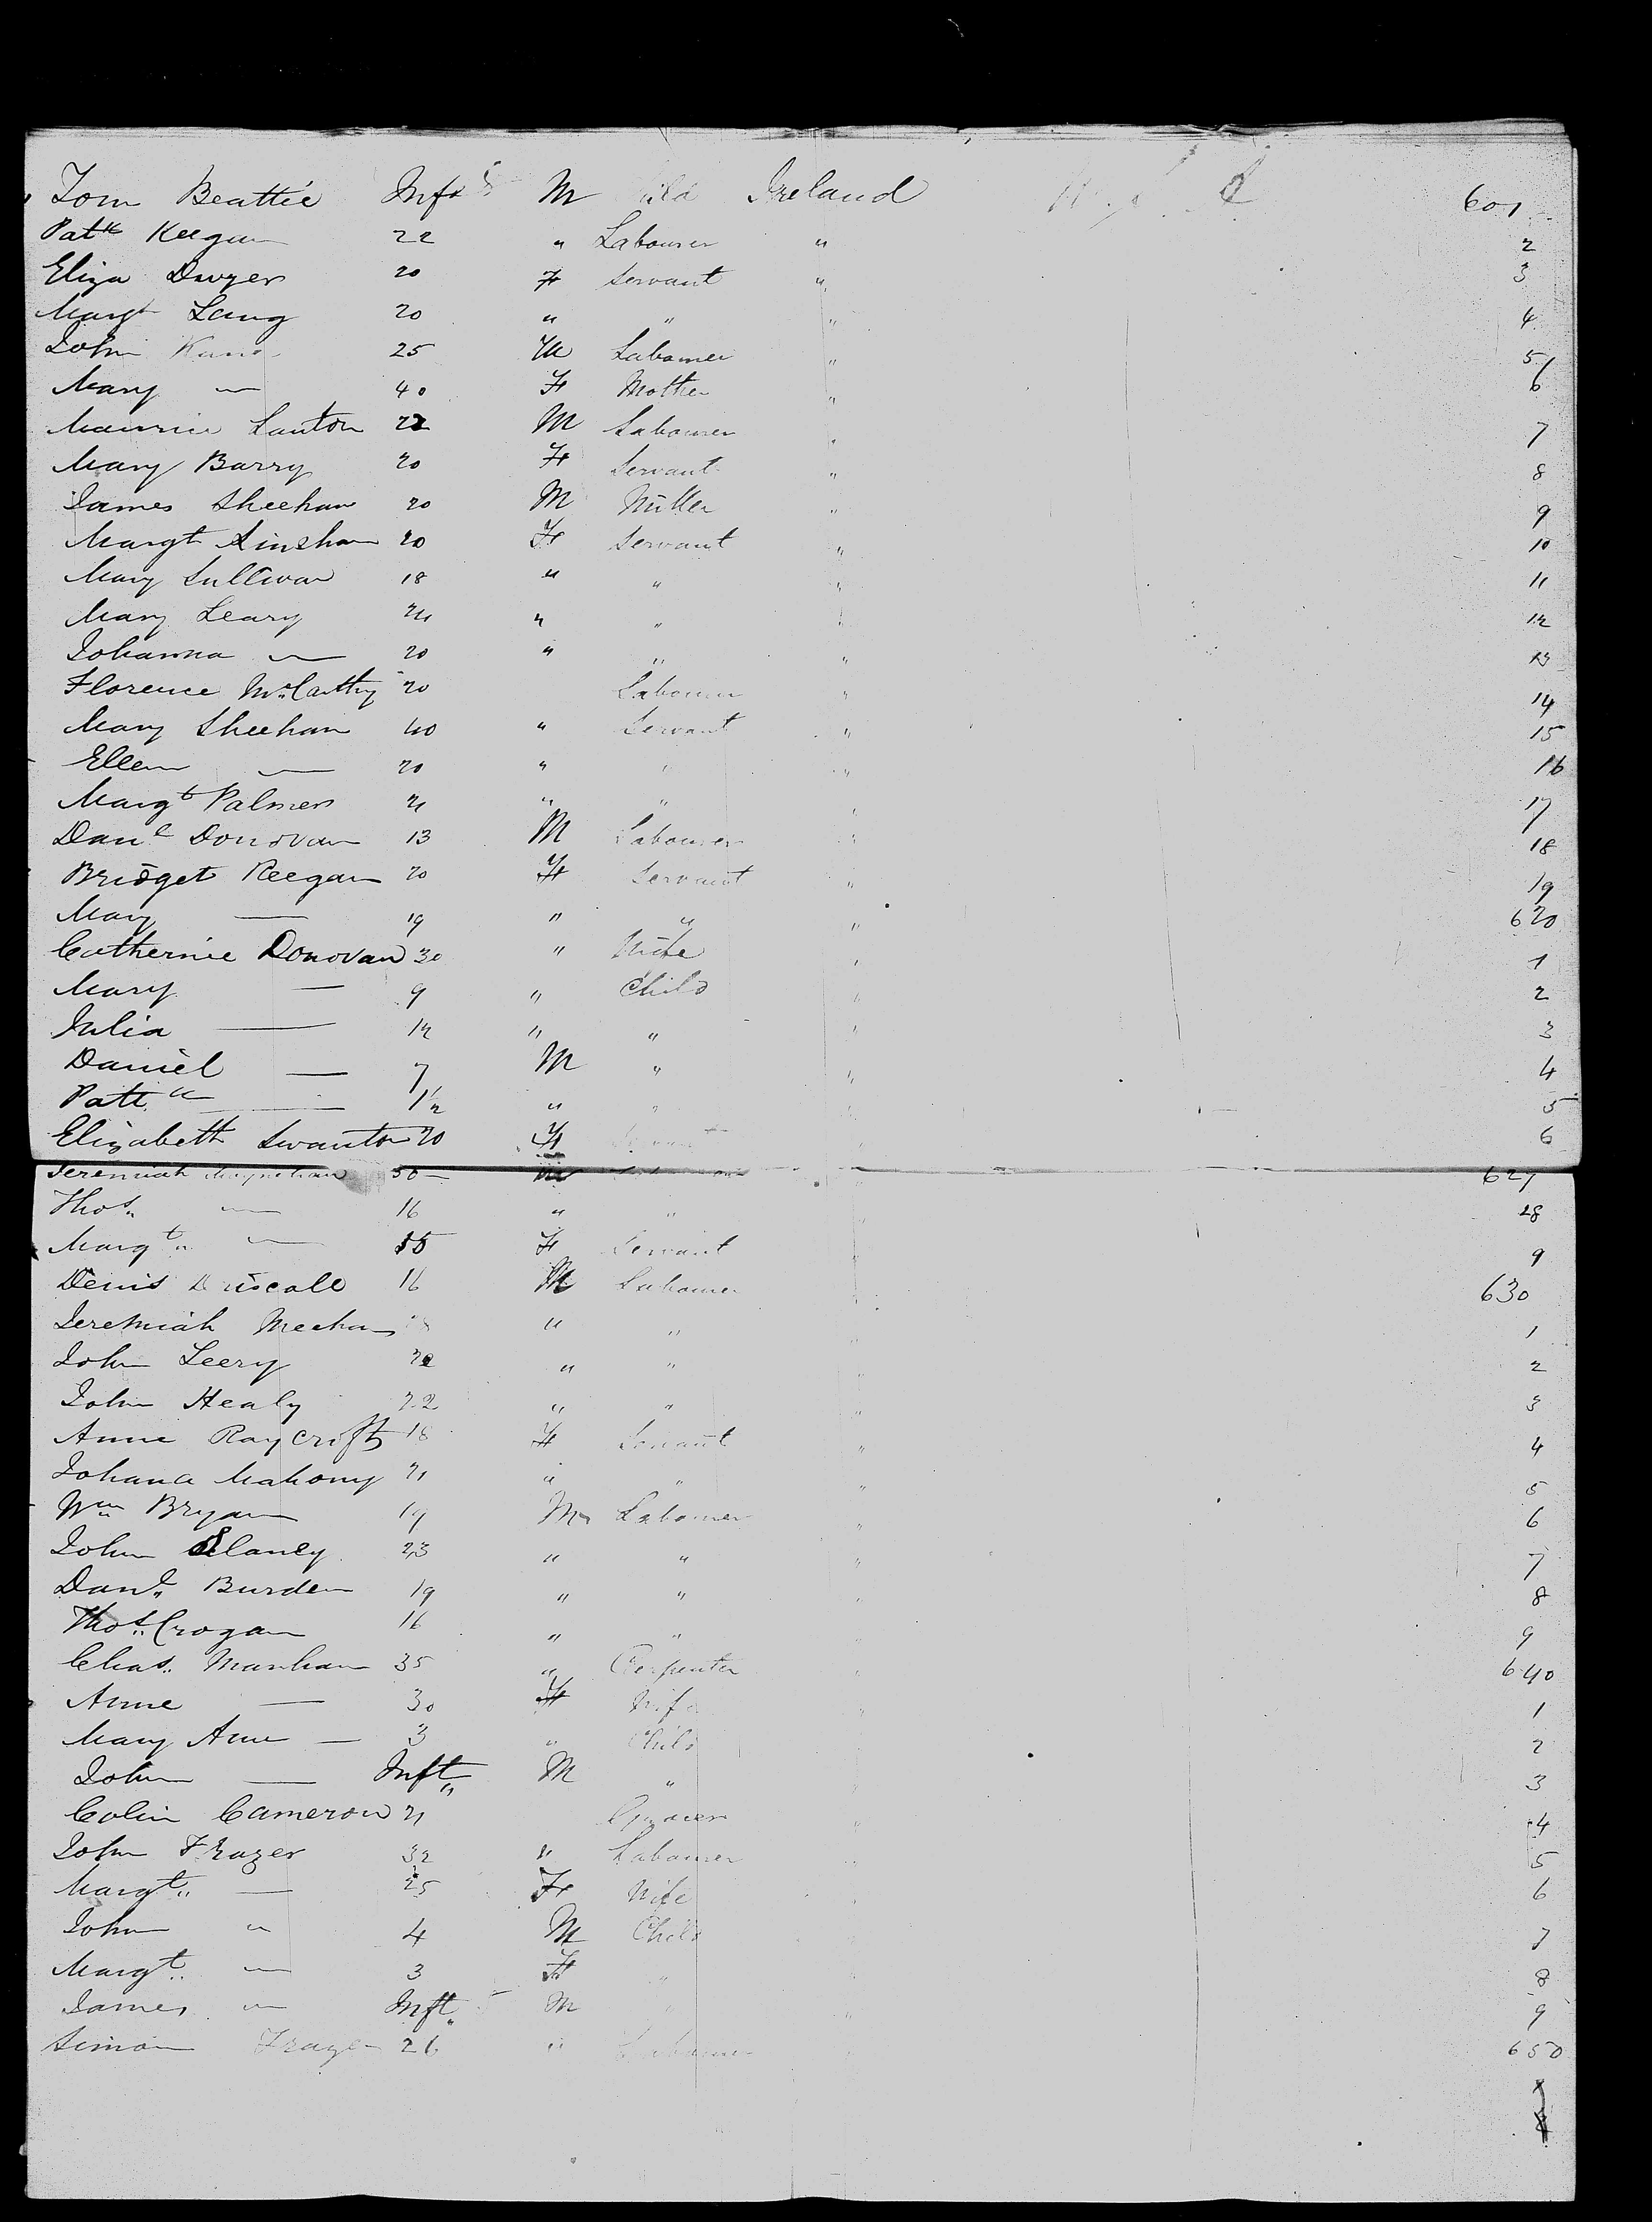 Tom Beattie Inft M Child Ireland 601
Patk Keegan 22 " Labourer " 2
Eliza Dwyer 20 F Servant " 3
Margt Lang 20 " " " 4
John 25 M Labourer " 5
Mary — 40 F Mother " 6
Maurice Lanton 22 M Labourer " 7
Mary Barry 20 F Servant " 8
James Sheehan 20 M Miller " 9
Margt 20 F Servant " 10
Mary Sullivan 18 " " " 11
Mary Leary " " " 12
Johanna — 20 " " " 13
Florence McCarthy 20 Labourer " 14
Mary Sheehan 40 " Servant " 15
Ellen — 20 " " " 16
Margt Palmer 21 " " " 17
Danl Donovan 13 M Labourer " 18
Bridget Keegan 20 F Servant " 19
Mary — 19 " " " 620
Catherine Donovan 30 " Wife " 1
Mary — 9 " Child " 2
Julia — 12 " " " 3
Daniel — 7 M " " 4
Pattk — 1½ " " " 5
Elizabeth Swanton 20 F Servant " 6
Jeremiah 50 M 627
Thos. — 16 " " " 28
Margt. — F Servant " 9
Denis Driscoll 16 M Labourer " 630
Jeremiah Meehan " " " 1
John Leery " " " 2
John Healy 22 " " " 3
Anne Raycroft 18 F Servant " 4
Johana Mahony 21 " " " 5
Wm Bryan 19 M Labourer " 6
John Slaney 23 " " " 7
Danl. Burden 19 " " " 8
Thos. Crogan 16 " " " 9
Chas. Manhan 35 " Carpenter " 640
Anne — 30 F Wife " 1
Mary Ann — 3 " Child " 2
John — Inft M " " 3
Colin Cameron 21 " 4
John Frazer 32 " Labourer " 5
Margt. — 25 F Wife 6
John " 4 M Child 7
Margt. — 3 F " 8
James — Inft. M " " 9
Simon Frazer 26 " Labourer " 650